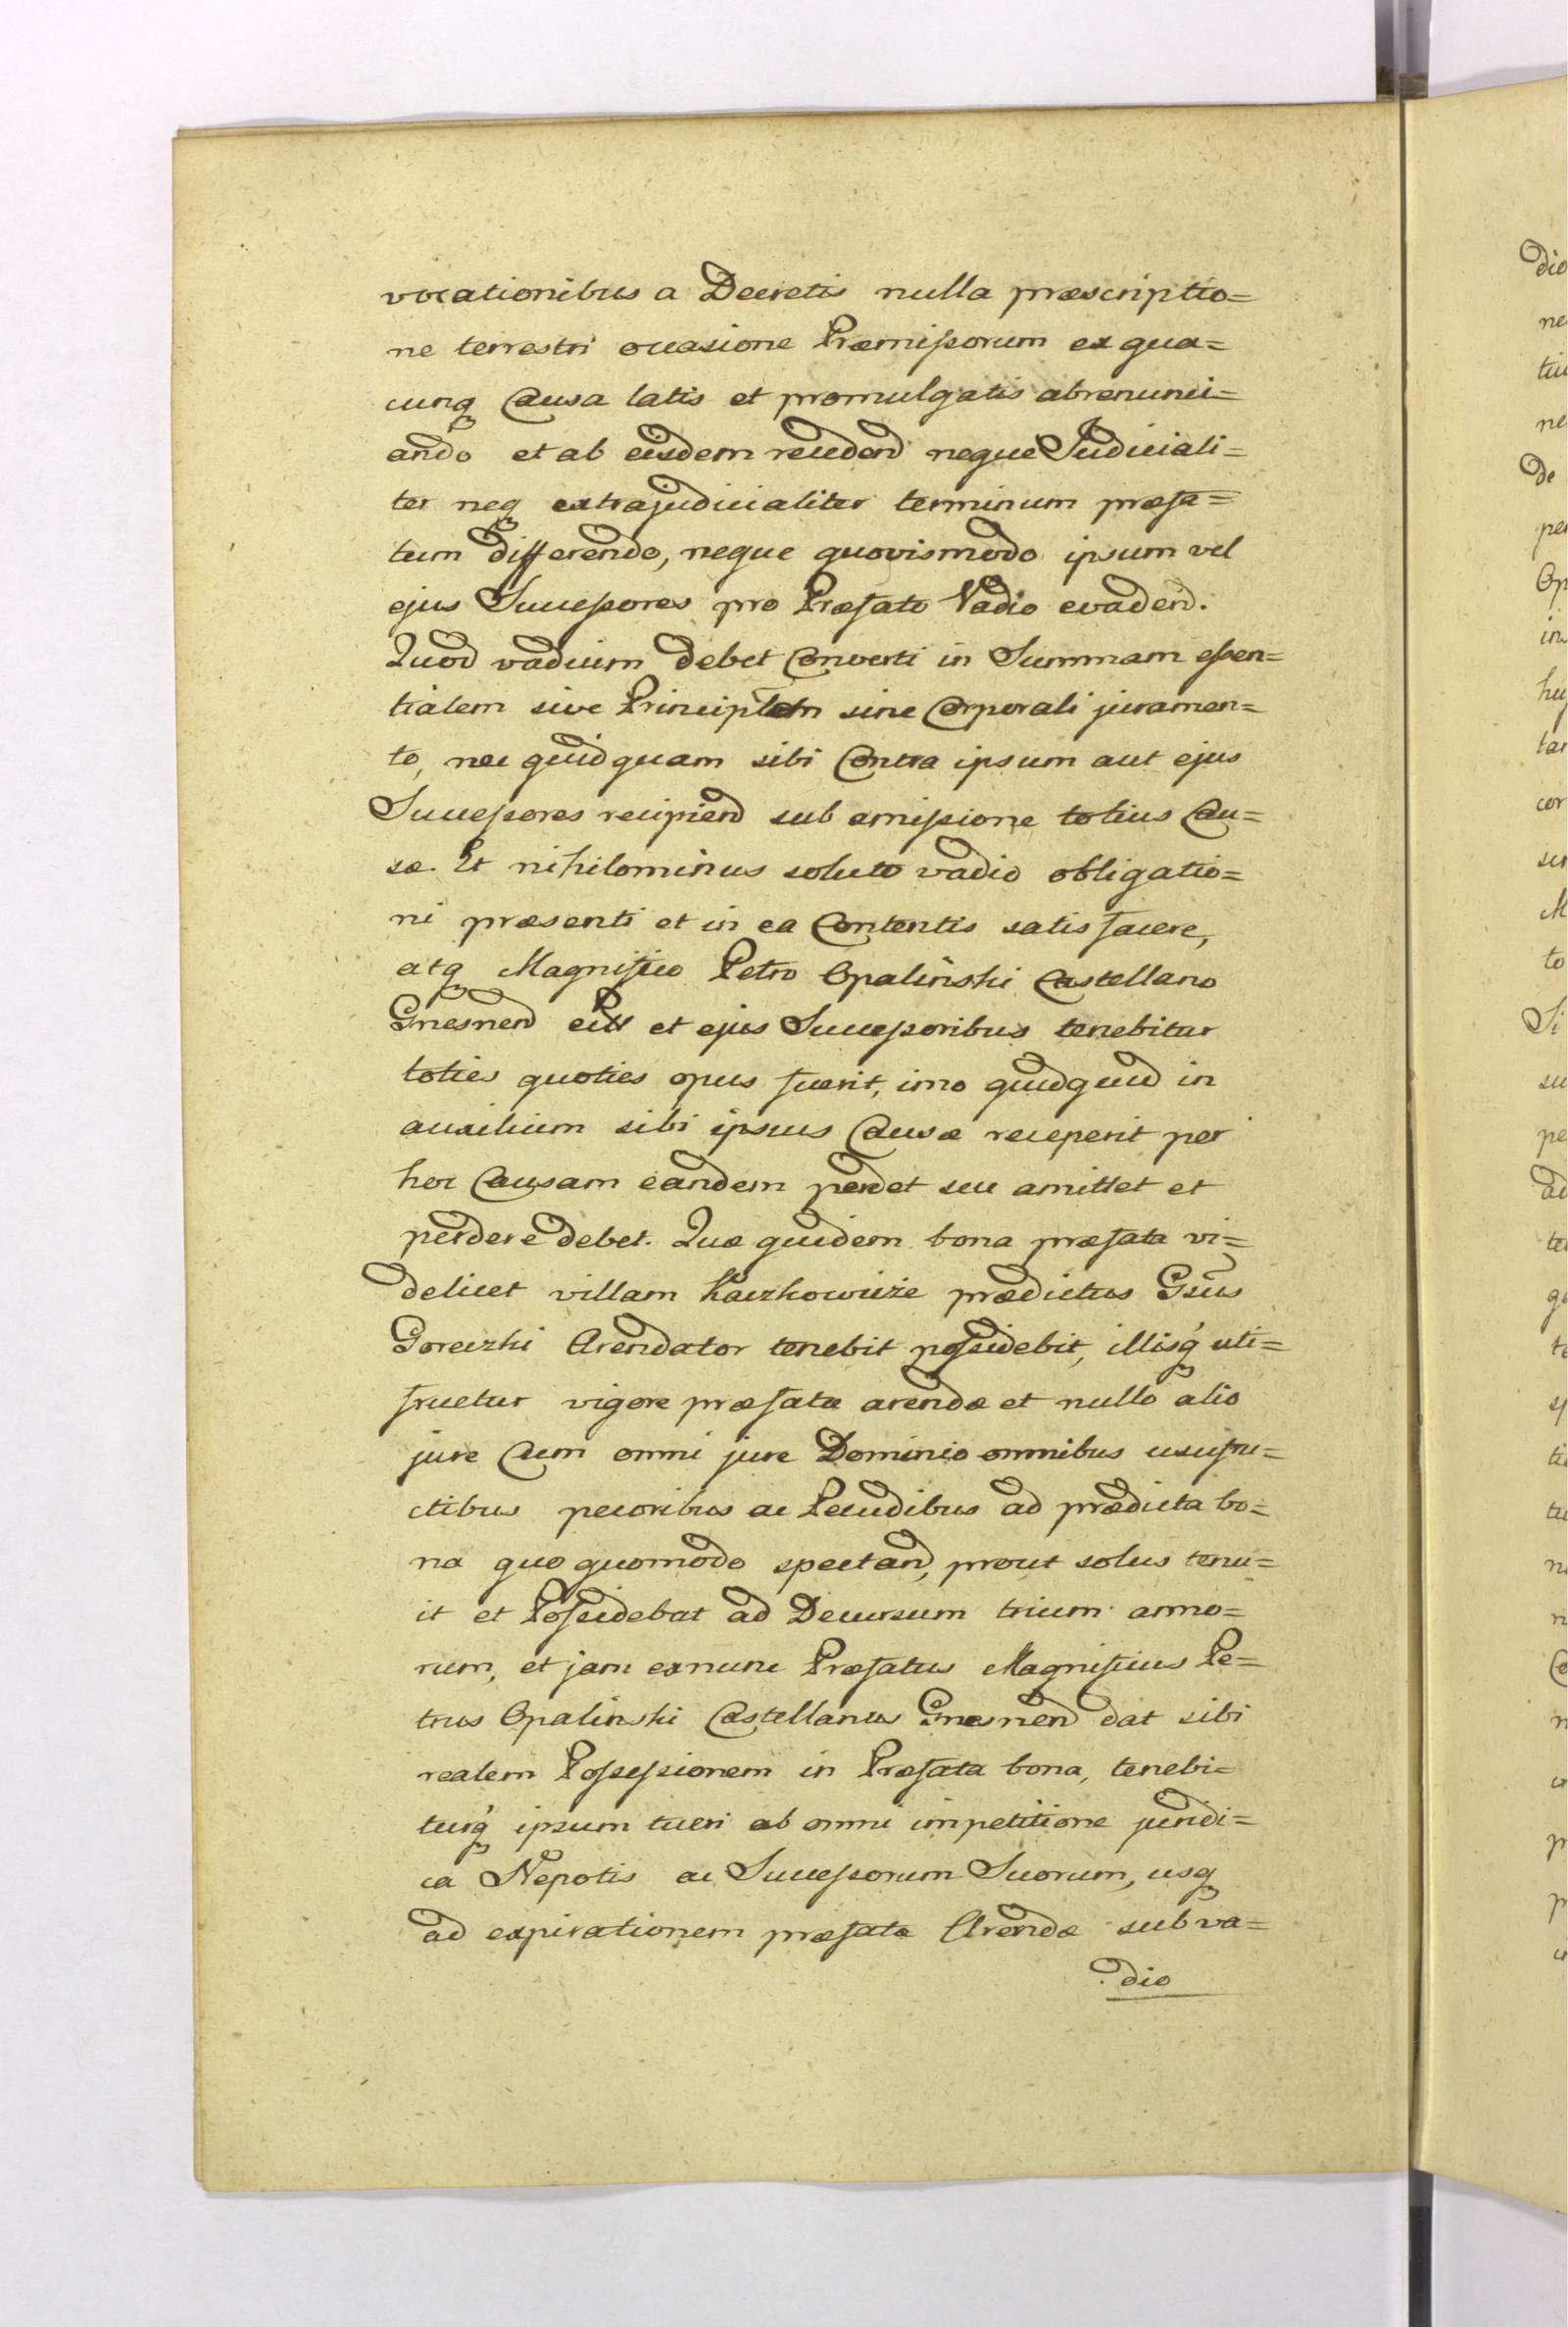 vocationibus a Decretis nulla præscriptio=
ne terrestri occasione Præmissorum ex qua=
cunq Causa latis et promulgatis abrenunci=
ando et ab eisdem recedend neque Judiciali=
ter neq extrajudicialiter terminum præfa=
tum differendo, neque quovismodo ipsum vel
ejus Successores pro Præfato Vadio evadend.
Quod vadium debet Converti in Summam essen=
tialem sive Principlem sine Corporali juramen=
to, nec quidquam sibi Contra ipsum aut ejus
Successores recipiend sub amissione totius Cau=
sæ. Et nihilominus soluto vadio obligatio=
ni præsenti et in ea Contentis satisfacere,
atq Magnifico Petro Opaliński Castellano
Gnesnen et ejus Successoribus tenebitur
toties quoties opus fuerit, imo quidquid in
auxilium sibi ipsius Causæ receperit per
hoc Causam eandem perdet seu amittet et
perdere debet. Quæ quidem bona præfata vi=
delicet villam Kaczkowicze prædictus Gsus
Goreczki Arendator tenebit possidebit, illisq uti=
fruetur vigore præfatæ arendæ et nullo alio
jure Cum omni jure Dominio omnibus usufru=
ctibus pecoribus ac Pecudibus ad prædicta bo=
na quo quomodo spectand, prout solus tenu=
it et Possidebat ad Decursum trium anno=
rum, et jam exnunc Præfatus Magnificus Pe=
trus Opalinski Castellanus Gnesnen dat sibi
realem Possessionem in Præfata bona, tenebi=
turq ipsum tueri ab omni impetitione juridi=
ca Nepotis ac Successorum Suorum, usq
ad expirationem præfatæ Arendæ sub va=
dio